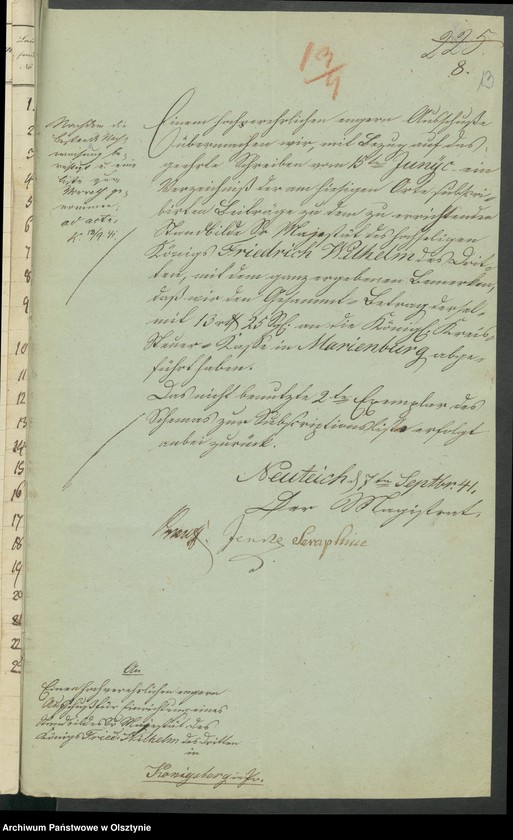 13/9
225
8.
13
Nachdem die
ad acta
K. 13/9 41
Einem hochverehrlichen engern Ausschusse
übermachen wir, mit Bezug auf das
geehrte Schreiben vom 15ten Juny c. ein
Verzeichniß der am hiesigen Orte subscri-
birten Beiträge zu dem zu errichtenden
Standbilde Sr Majestät des hochseligen
Königs Friedrich Wilhelm des Drit-
ten, mit dem ganz ergebenen Bemerken,
daß wir den Gesammt-Betrag dersel-
mit 13 rt 25 Sg: an die Königl: Kreis-
Steuer-Kasse in Marienburg abge-
führt haben.
Das nicht benutzte 2te Exemplar des
Schemas zur Subscriptionsliste erfolgt
anbei zurück.
Neuteich d 7ten Septbr. 41.
Der Magistrat.
Seraphim
An
Einen hochverehrlichen engern
Ausschuß für Errichtung eines
Standbildes Sr Majestät des
Königs Fried: Wilhelm des dritten
in
Königsberg in Pr.
1
2
3
4
5
6
7
8
9
10
11
12
13
14
15
16
17
18
19
20
21
22
Archiwum Państwowe w Olsztynie